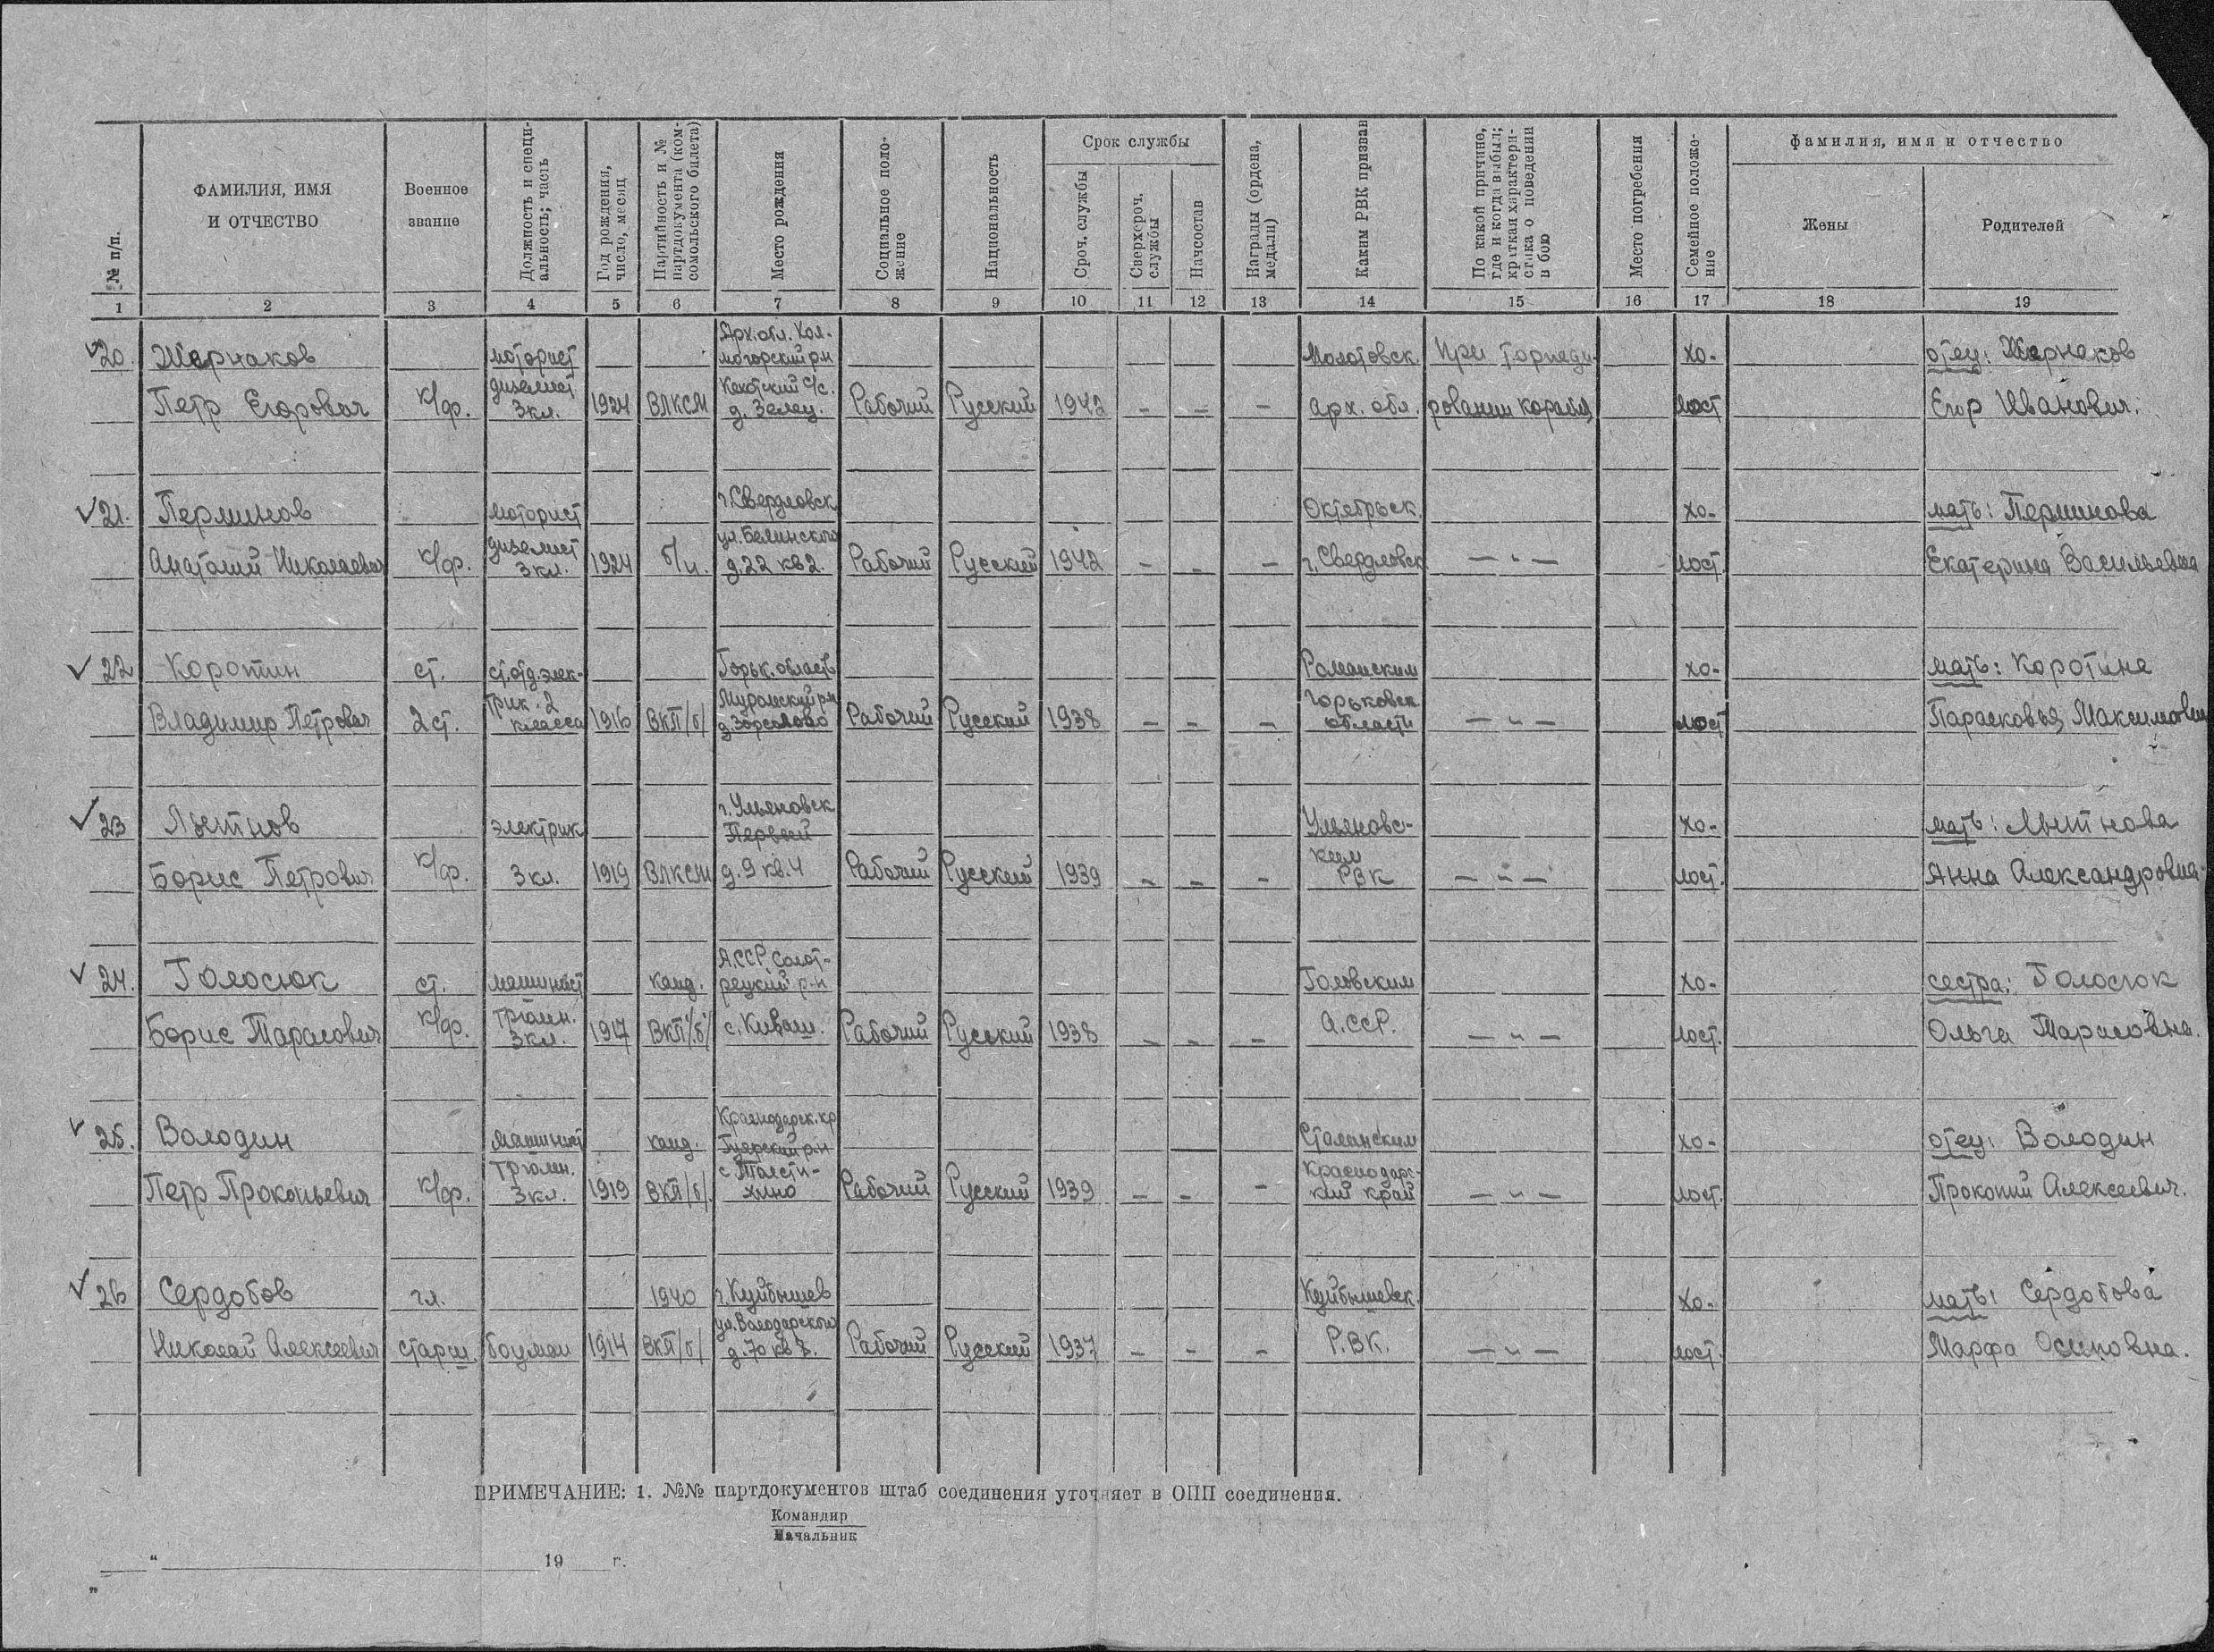 № п/п.
ФАМИЛИЯ, ИМЯ
И ОТЧЕСТВО
Военное
звание
Должность и специ-
альность; часть
Год рождения,
число, месяц
Партийность и №
партдокумента (ком-
сомольского билета)
Место рождения
Социальное поло-
жение
Национальность
Срок службы
Сроч. службы
Сверхсроч.
службы
Начсостав
Награды (ордена,
медали)
Каким РВК призван
По какой причине,
где и когда выбыл;
краткая характери-
стика о поведении
в бою
Место погребения
Семейное положе-
ние
фамилия, имя и отчество
Жены
Родителей
1 2 3 4 5 6 7 8 9 10 11 12 13 14 15 16 17 18 19
Арх. обл. Хол-
20. Жернаков моторист могорский р-н Молотовск. При торпеди- хо- отец: Жернаков
дизелист Кехотский с/с.
Петр Егорович к/ф. 3 кл. 1924 ВЛКСМ д. Зелец. Рабочий Русский 1942 - - - Арх. обл. ровании корабля лост Егор Иванович.
21. Перминов моторист г. Свердловск Октябрьск. хо- мать: Перминова
дизелист ул. Белинского
Анатолий Николаевич к/ф. 3 кл. 1924 б/п. д. 22 кв 2. Рабочий Русский 1942 - - - г. Свердловск — " — лост. Екатерина Васильевна
22 Коротин ст. ст. отд. элек- Горьк. область хо- мать: Коротина
трик. 2 Муромский р-н Горьковск
Владимир Петрович 2 ст. класса 1916 ВКП/б/ Рабочий Русский 1938 - - - области — " — лост Парасковья Максимовна
г. Ульяновск
23 Лытнов электрик Первый Ульяновс- хо- мать: Лытнова
ким
Борис Петрович к/ф. 3 кл. 1919 ВЛКСМ д. 9 кв. 4 Рабочий Русский 1939 - - - РВК — " — лост. Анна Александровна
А.ССР.
24. Голосюк ст. машинист канд. р-н хо- сестра: Голосюк
трюмн.
Борис Тарасович к/ф. 3 кл. 1917 ВКП/б/ с. Киваш. Рабочий Русский 1938 - - - А.ССР. — " — лост. Ольга Тарасовна.
Краснодарск. кр
25. Володин машинист канд. р-н Сталинским хо- отец: Володин
трюмн. Краснодарс-
Петр Прокопьевич к/ф. 3 кл. 1919 ВКП/б/. Рабочий Русский 1939 - - - кий край — " — лост. Прокопий Алексеевич.
26 Сердобов гл. 1940 г. Куйбышев Куйбышевск. хо- мать: Сердобова
ул. Володарского
Николай Алексеевич старш. боцман 1914 ВКП/б/ д. 70 кв 8. Рабочий Русский 1937 - - - Р.В.К. — " — лост. Марфа Осиповна.
ПРИМЕЧАНИЕ: 1. №№ партдокументов штаб соединения уточняет в ОПП соединения.
Командир
Начальник
" 19 г.